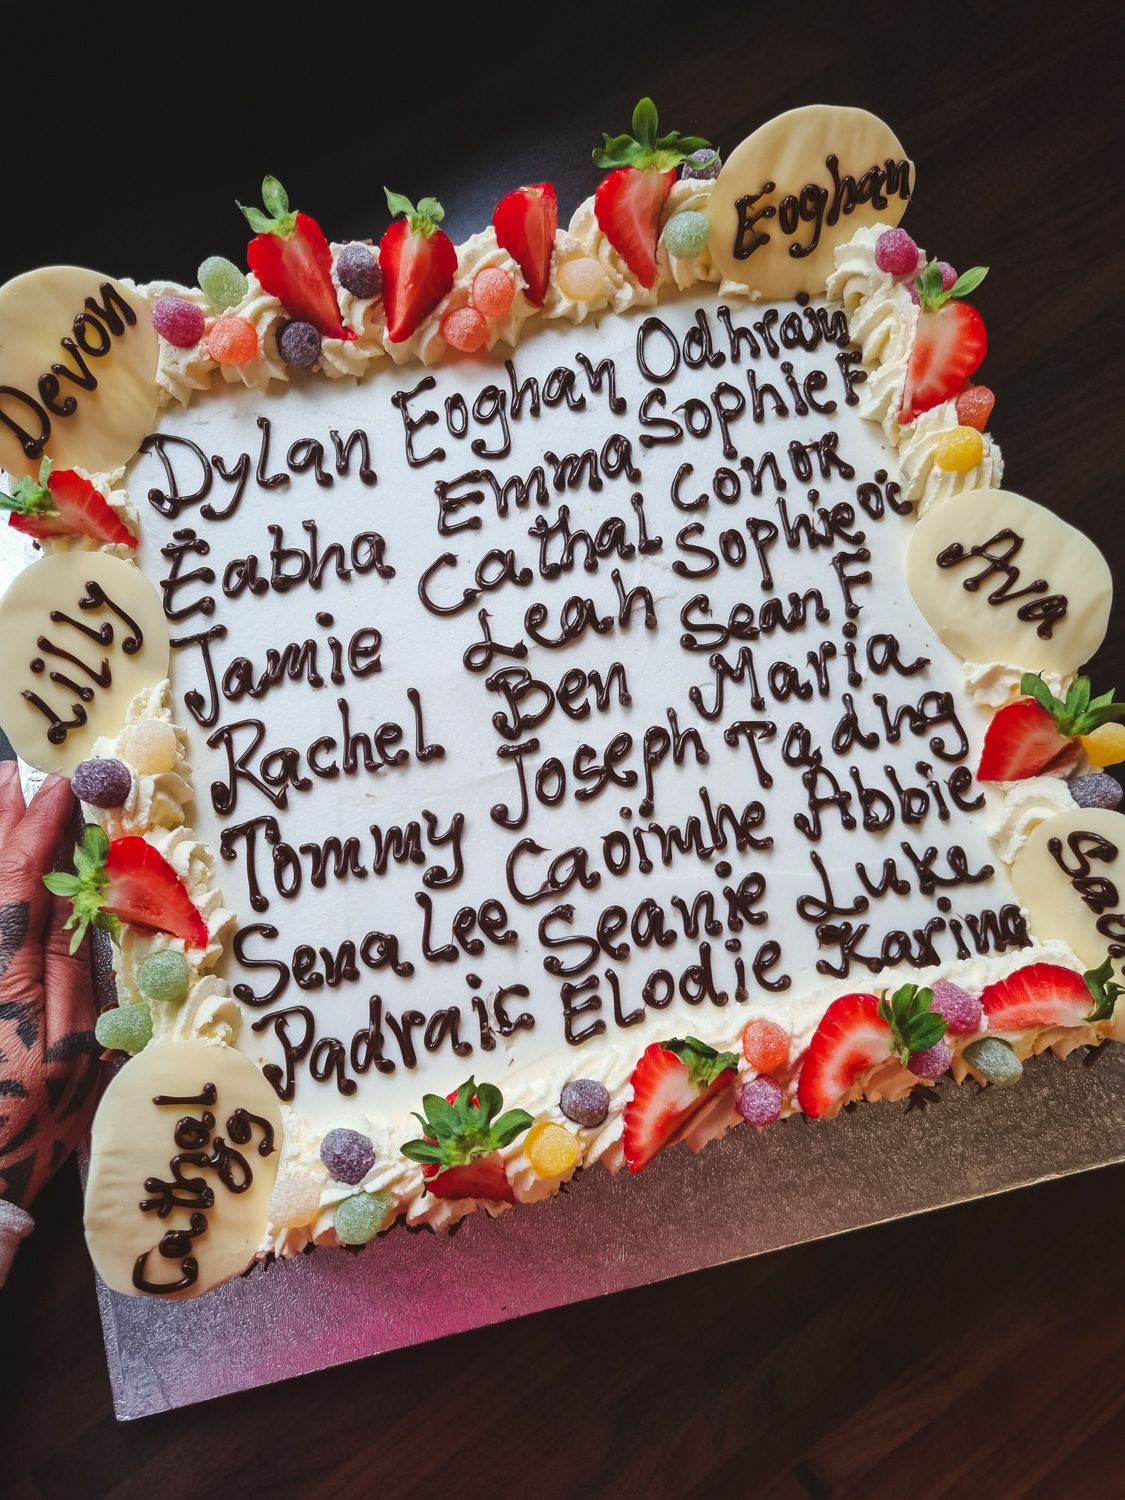 Devon
Eoghan
Dylan Eoghan Odhran
Éabha Emma Sophie F
Jamie Cathal Conor
Rachel Leah Sophie O'C
Tommy Ben Sean F
Sena Lee Joseph Maria
Padraic Caoimhe Tadhg
Seanie Abbie
Elodie Luke
Karina
Ava
Lilly
Cathal